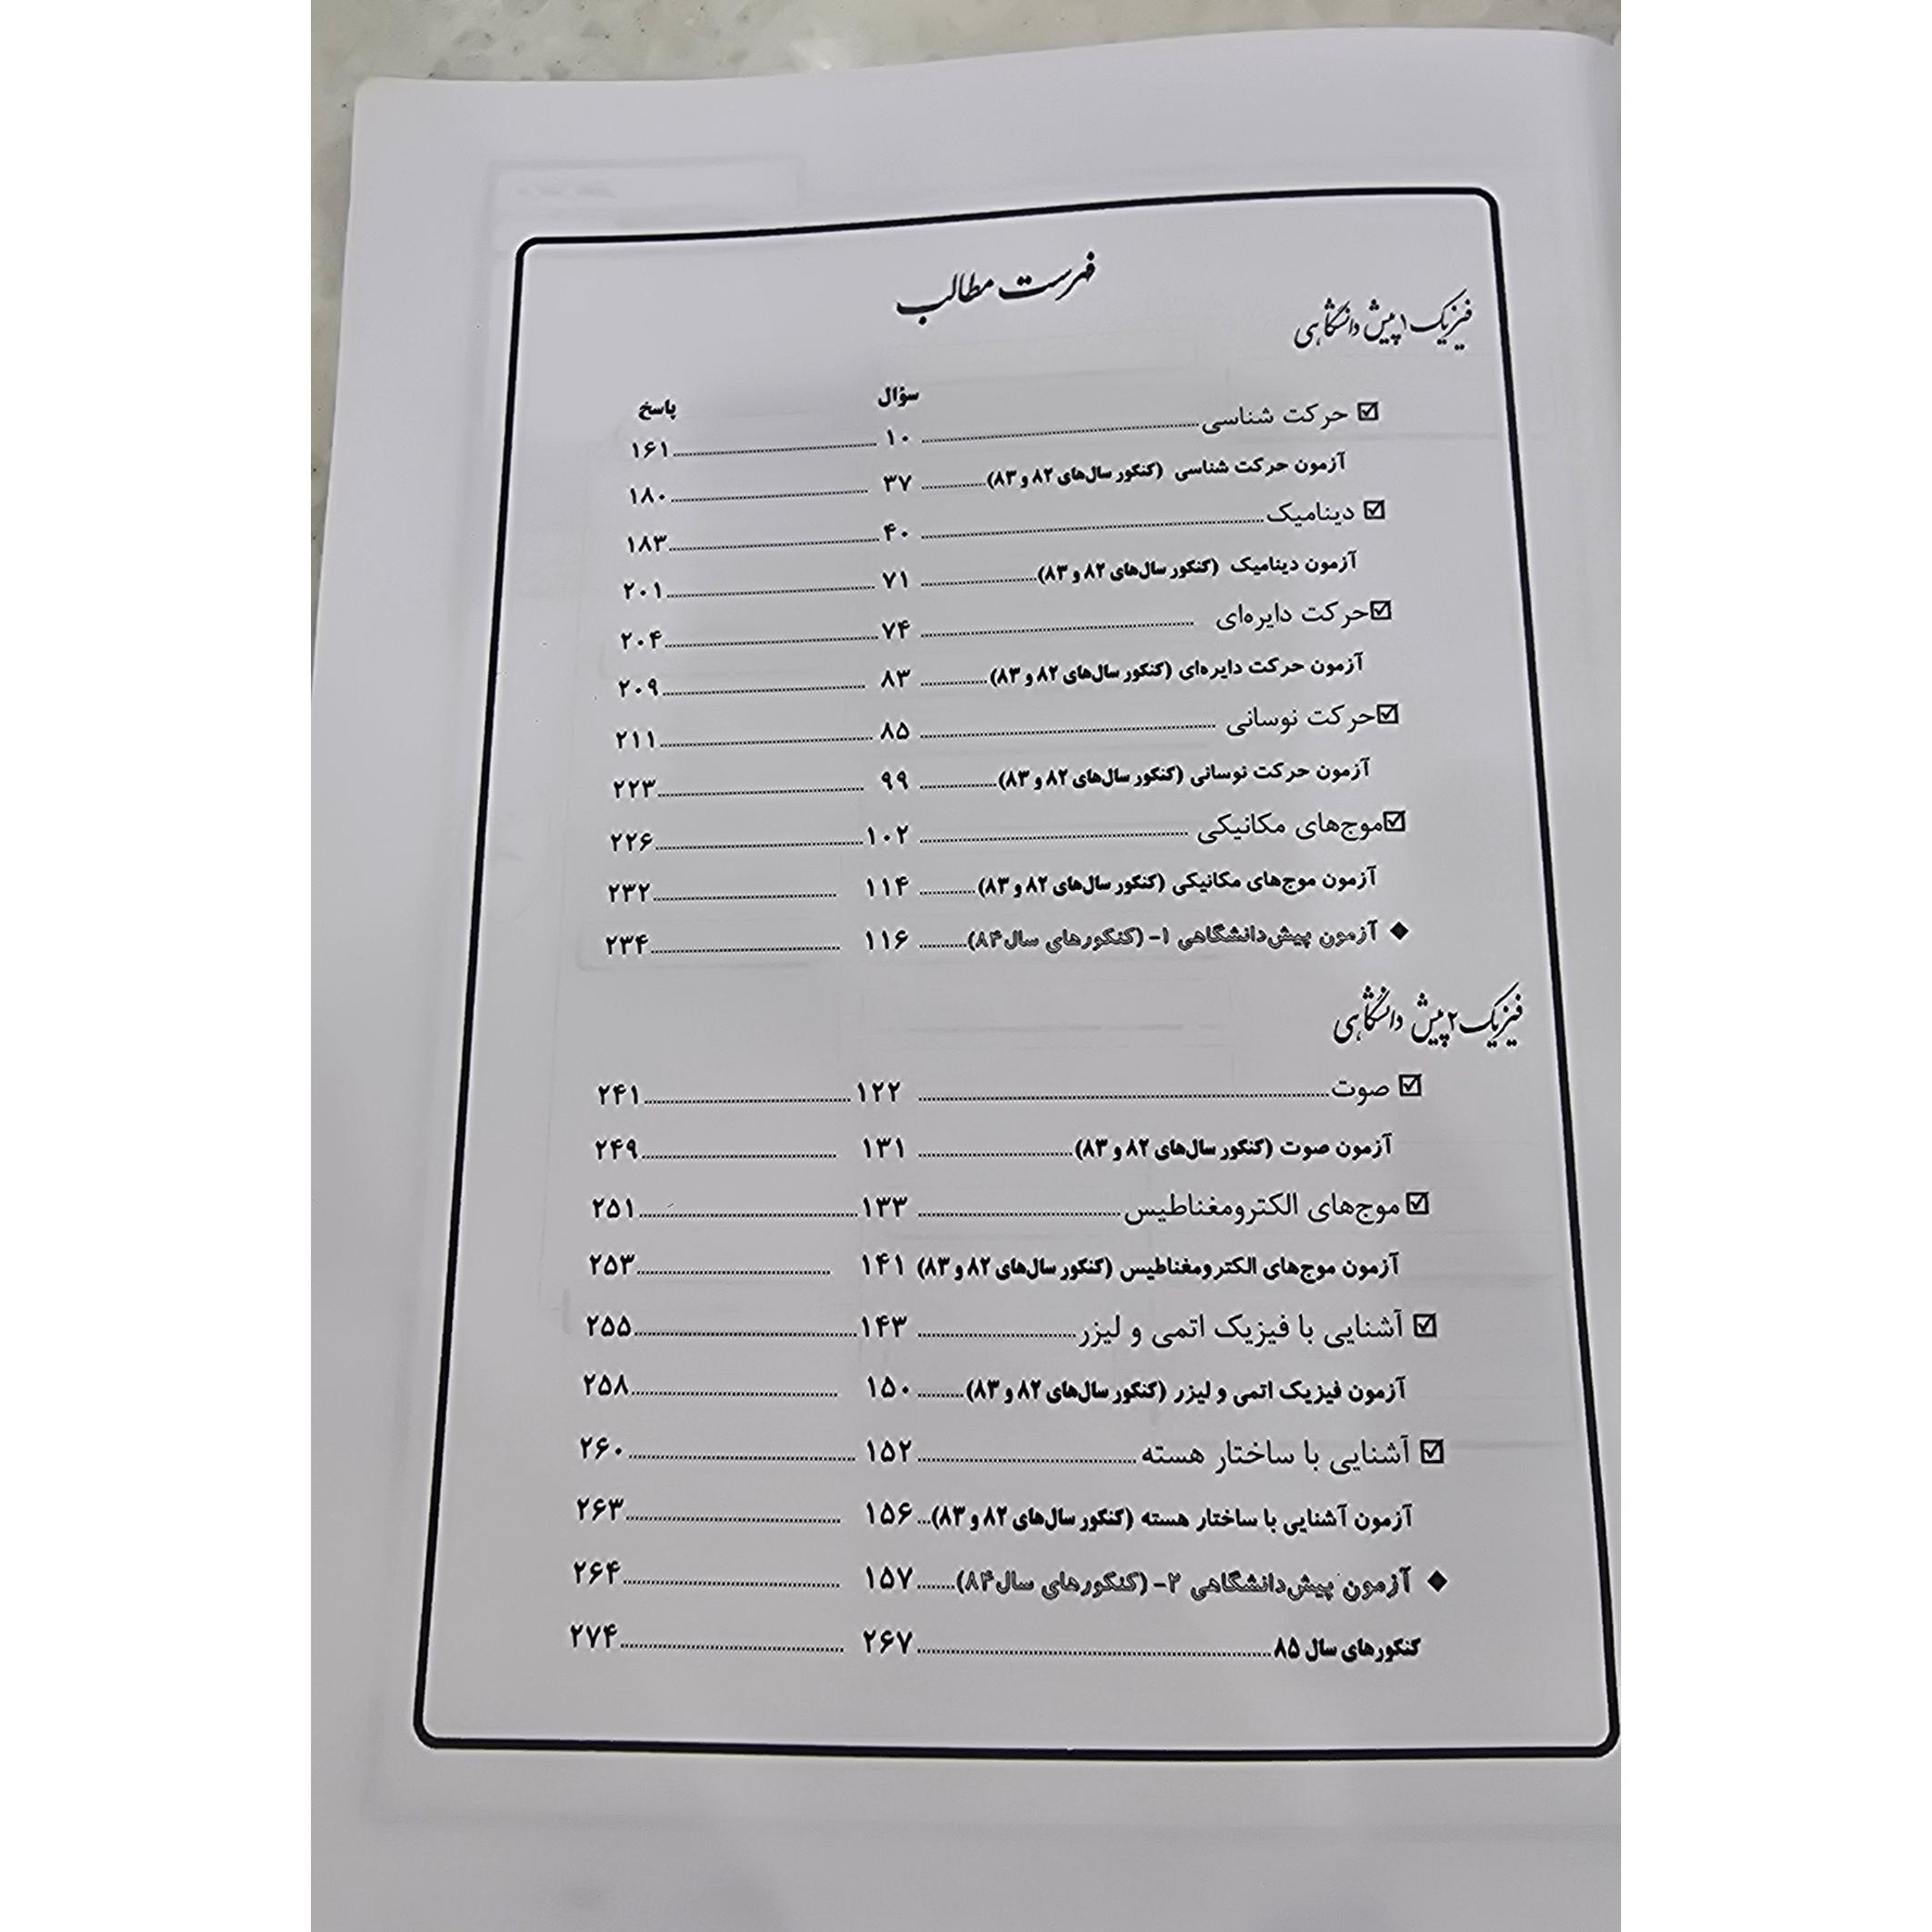 فهرست مطالب
فیزیک ۱ پیش دانشگاهی
سؤال پاسخ
☑ حرکت شناسی ........ ۱۰ ........ ۱۶۱
آزمون حرکت شناسی (کنکور سال‌های ۸۲ و ۸۳) ........ ۳۷ ........ ۱۸۰
☑ دینامیک ........ ۴۰ ........ ۱۸۳
آزمون دینامیک (کنکور سال‌های ۸۲ و ۸۳) ........ ۷۱ ........ ۲۰۱
☑ حرکت دایره‌ای ........ ۷۴ ........ ۲۰۴
آزمون حرکت دایره‌ای (کنکور سال‌های ۸۲ و ۸۳) ........ ۸۳ ........ ۲۰۹
☑ حرکت نوسانی ........ ۸۵ ........ ۲۱۱
آزمون حرکت نوسانی (کنکور سال‌های ۸۲ و ۸۳) ........ ۹۹ ........ ۲۲۳
☑ موج‌های مکانیکی ........ ۱۰۲ ........ ۲۲۶
آزمون موج‌های مکانیکی (کنکور سال‌های ۸۲ و ۸۳) ........ ۱۱۴ ........ ۲۳۲
◆ آزمون پیش‌دانشگاهی ۱- (کنکورهای سال ۸۴) ........ ۱۱۶ ........ ۲۳۴
فیزیک ۲ پیش دانشگاهی
☑ صوت ........ ۱۲۲ ........ ۲۴۱
آزمون صوت (کنکور سال‌های ۸۲ و ۸۳) ........ ۱۳۱ ........ ۲۴۹
☑ موج‌های الکترومغناطیس ........ ۱۳۳ ........ ۲۵۱
آزمون موج‌های الکترومغناطیس (کنکور سال‌های ۸۲ و ۸۳) ۱۴۱ ........ ۲۵۳
☑ آشنایی با فیزیک اتمی و لیزر ........ ۱۴۳ ........ ۲۵۵
آزمون فیزیک اتمی و لیزر (کنکور سال‌های ۸۲ و ۸۳) ........ ۱۵۰ ........ ۲۵۸
☑ آشنایی با ساختار هسته ........ ۱۵۲ ........ ۲۶۰
آزمون آشنایی با ساختار هسته (کنکور سال‌های ۸۲ و ۸۳) ... ۱۵۶ ........ ۲۶۳
◆ آزمون پیش‌دانشگاهی ۲- (کنکورهای سال ۸۴) ........ ۱۵۷ ........ ۲۶۴
کنکورهای سال ۸۵ ........ ۲۶۷ ........ ۲۷۴